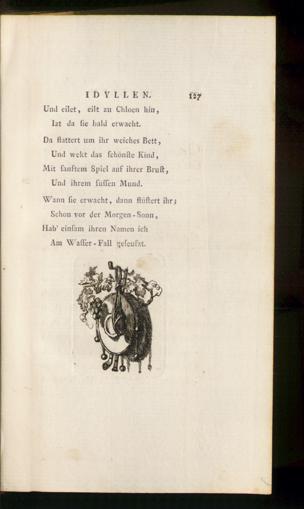 IDYLLEN. 127
Und eilet, eilt zu Chloen hin,
Izt da sie bald erwacht.
Da flattert um ihr weiches Bett,
Und wekt das schönste Kind,
Mit sanftem Spiel auf ihrer Brust,
Und ihrem süssen Mund.
Wann sie erwacht, dann flüstert ihr;
Schon vor der Morgen-Sonn,
Hab' einsam ihren Namen ich
Am Wasser-Fall geseufzt.